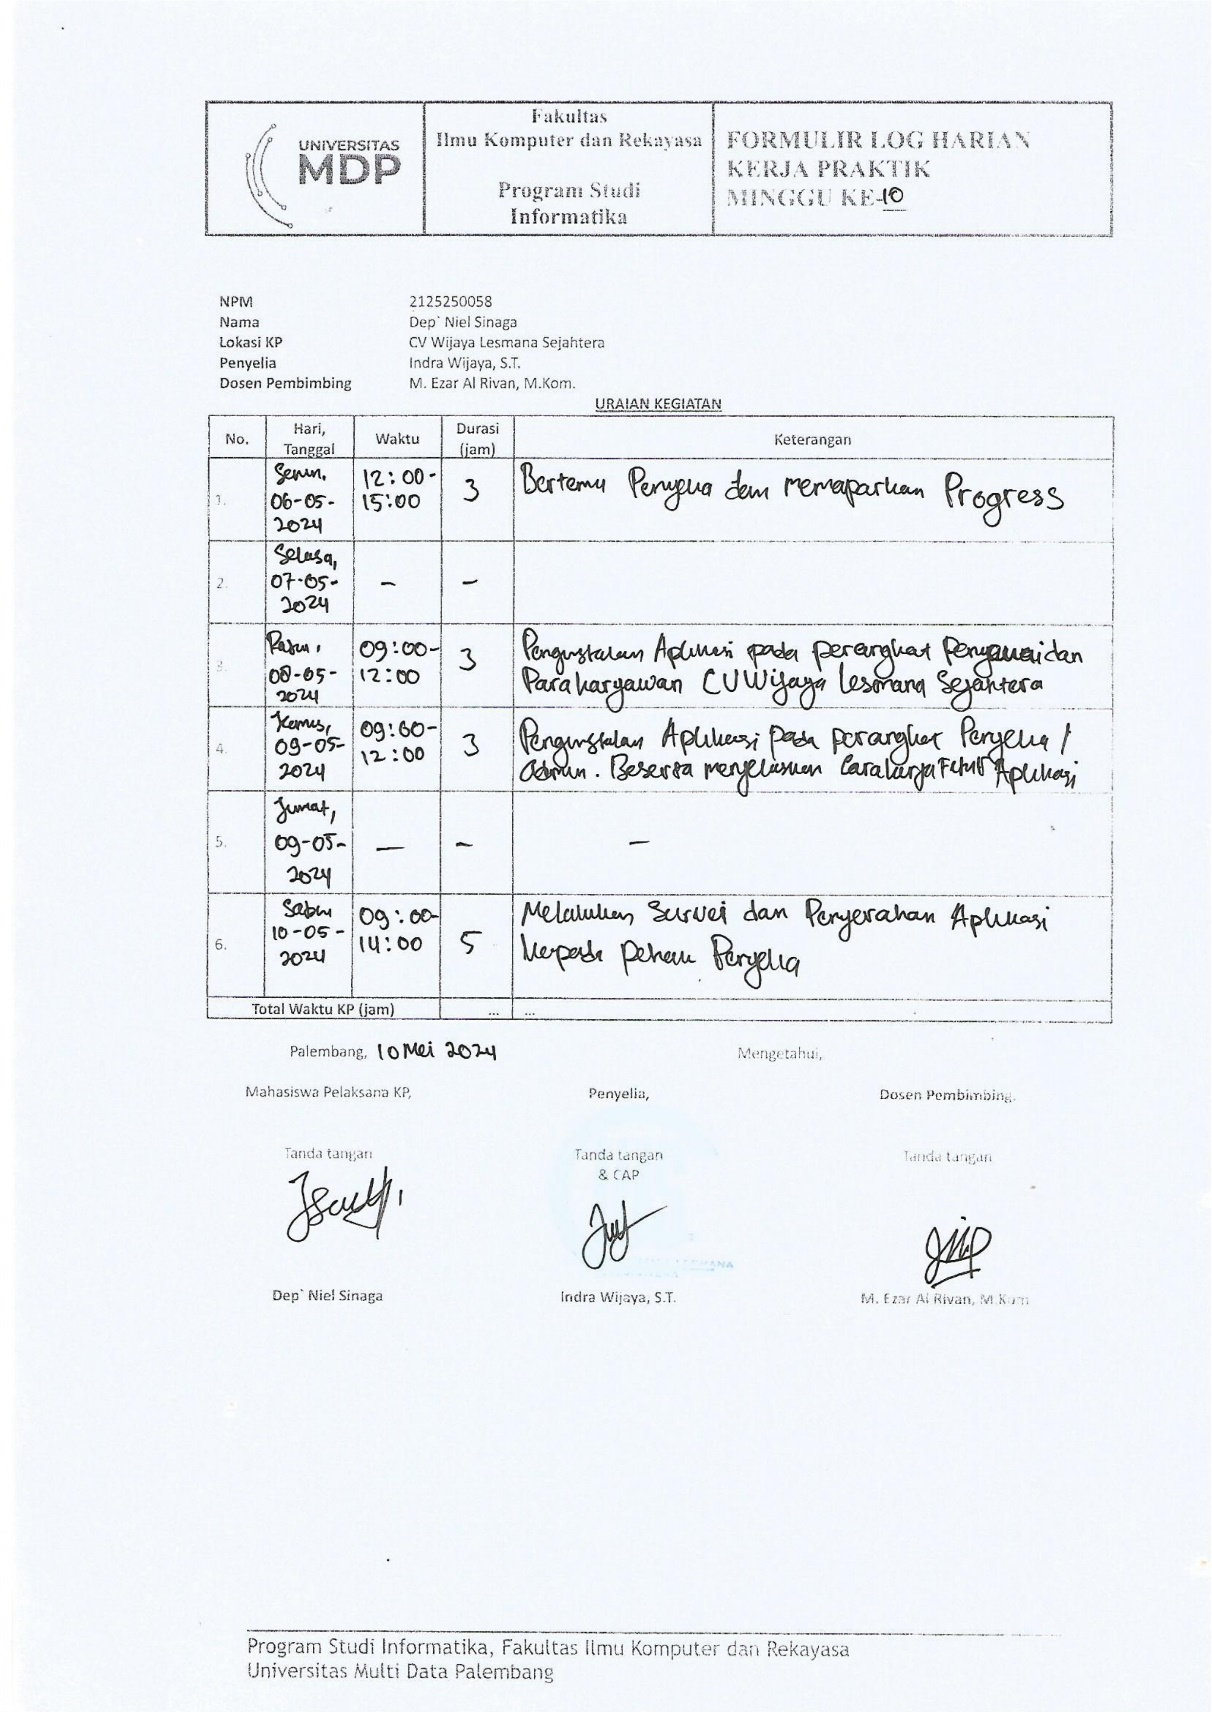 UNIVERSITAS
MDP
Fakultas
Ilmu Komputer dan Rekayasa
Program Studi
Informatika
FORMULIR LOG HARIAN
KERJA PRAKTIK
MINGGU KE-10
NPM 2125250058
Nama Dep` Niel Sinaga
Lokasi KP CV Wijaya Lesmana Sejahtera
Penyelia Indra Wijaya, S.T.
Dosen Pembimbing M. Ezar Al Rivan, M.Kom.
URAIAN KEGIATAN
No. Hari, Tanggal Waktu Durasi (jam) Keterangan
1. Senin, 06-05-2024 12:00-15:00 3 Bertemu Penyelia dan memaparkan Progress
2. Selasa, 07-05-2024 – –
3. Rabu, 08-05-2024 09:00-12:00 3 Penginstalan Aplikasi pada perangkat dan
Para karyawan CV Wijaya Lesmana Sejahtera
4. Kamis, 09-05-2024 09:00-12:00 3 Penginstalan Aplikasi pada perangkat Penyelia /
Admin. Beserta menjelaskan Cara kerja Fitur Aplikasi
5. Jumat, 09-05-2024 — – –
6. Sabtu 10-05-2024 09:00-14:00 5 Melakukan Survei dan Penyerahan Aplikasi
kepada pihak Penyelia
Total Waktu KP (jam) ... ...
Palembang, 10 Mei 2024
Mengetahui,
Mahasiswa Pelaksana KP, Penyelia, Dosen Pembimbing,
Tanda tangan Tanda tangan Tanda tangan
& CAP
Dep` Niel Sinaga Indra Wijaya, S.T. M. Ezar Al Rivan, M.Kom
Program Studi Informatika, Fakultas Ilmu Komputer dan Rekayasa
Universitas Multi Data Palembang